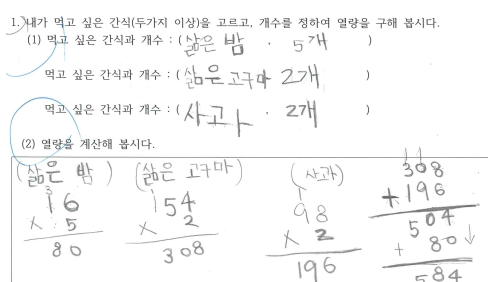 1. 내가 먹고 싶은 간식(두가지 이상)을 고르고, 개수를 정하여 열량을 구해 봅시다.
(1) 먹고 싶은 간식과 개수 : ( 삶은 밤 · 5개 )
먹고 싶은 간식과 개수 : ( 삶은 고구마 2개 )
먹고 싶은 간식과 개수 : ( 사과 · 2개 )
(2) 열량을 계산해 봅시다.
(삶은 밤) (삶은 고구마) (사과)
3
16
× 5
80
1
154
× 2
308
1
98
× 2
196
1 1
308
+196
504
+ 80
584